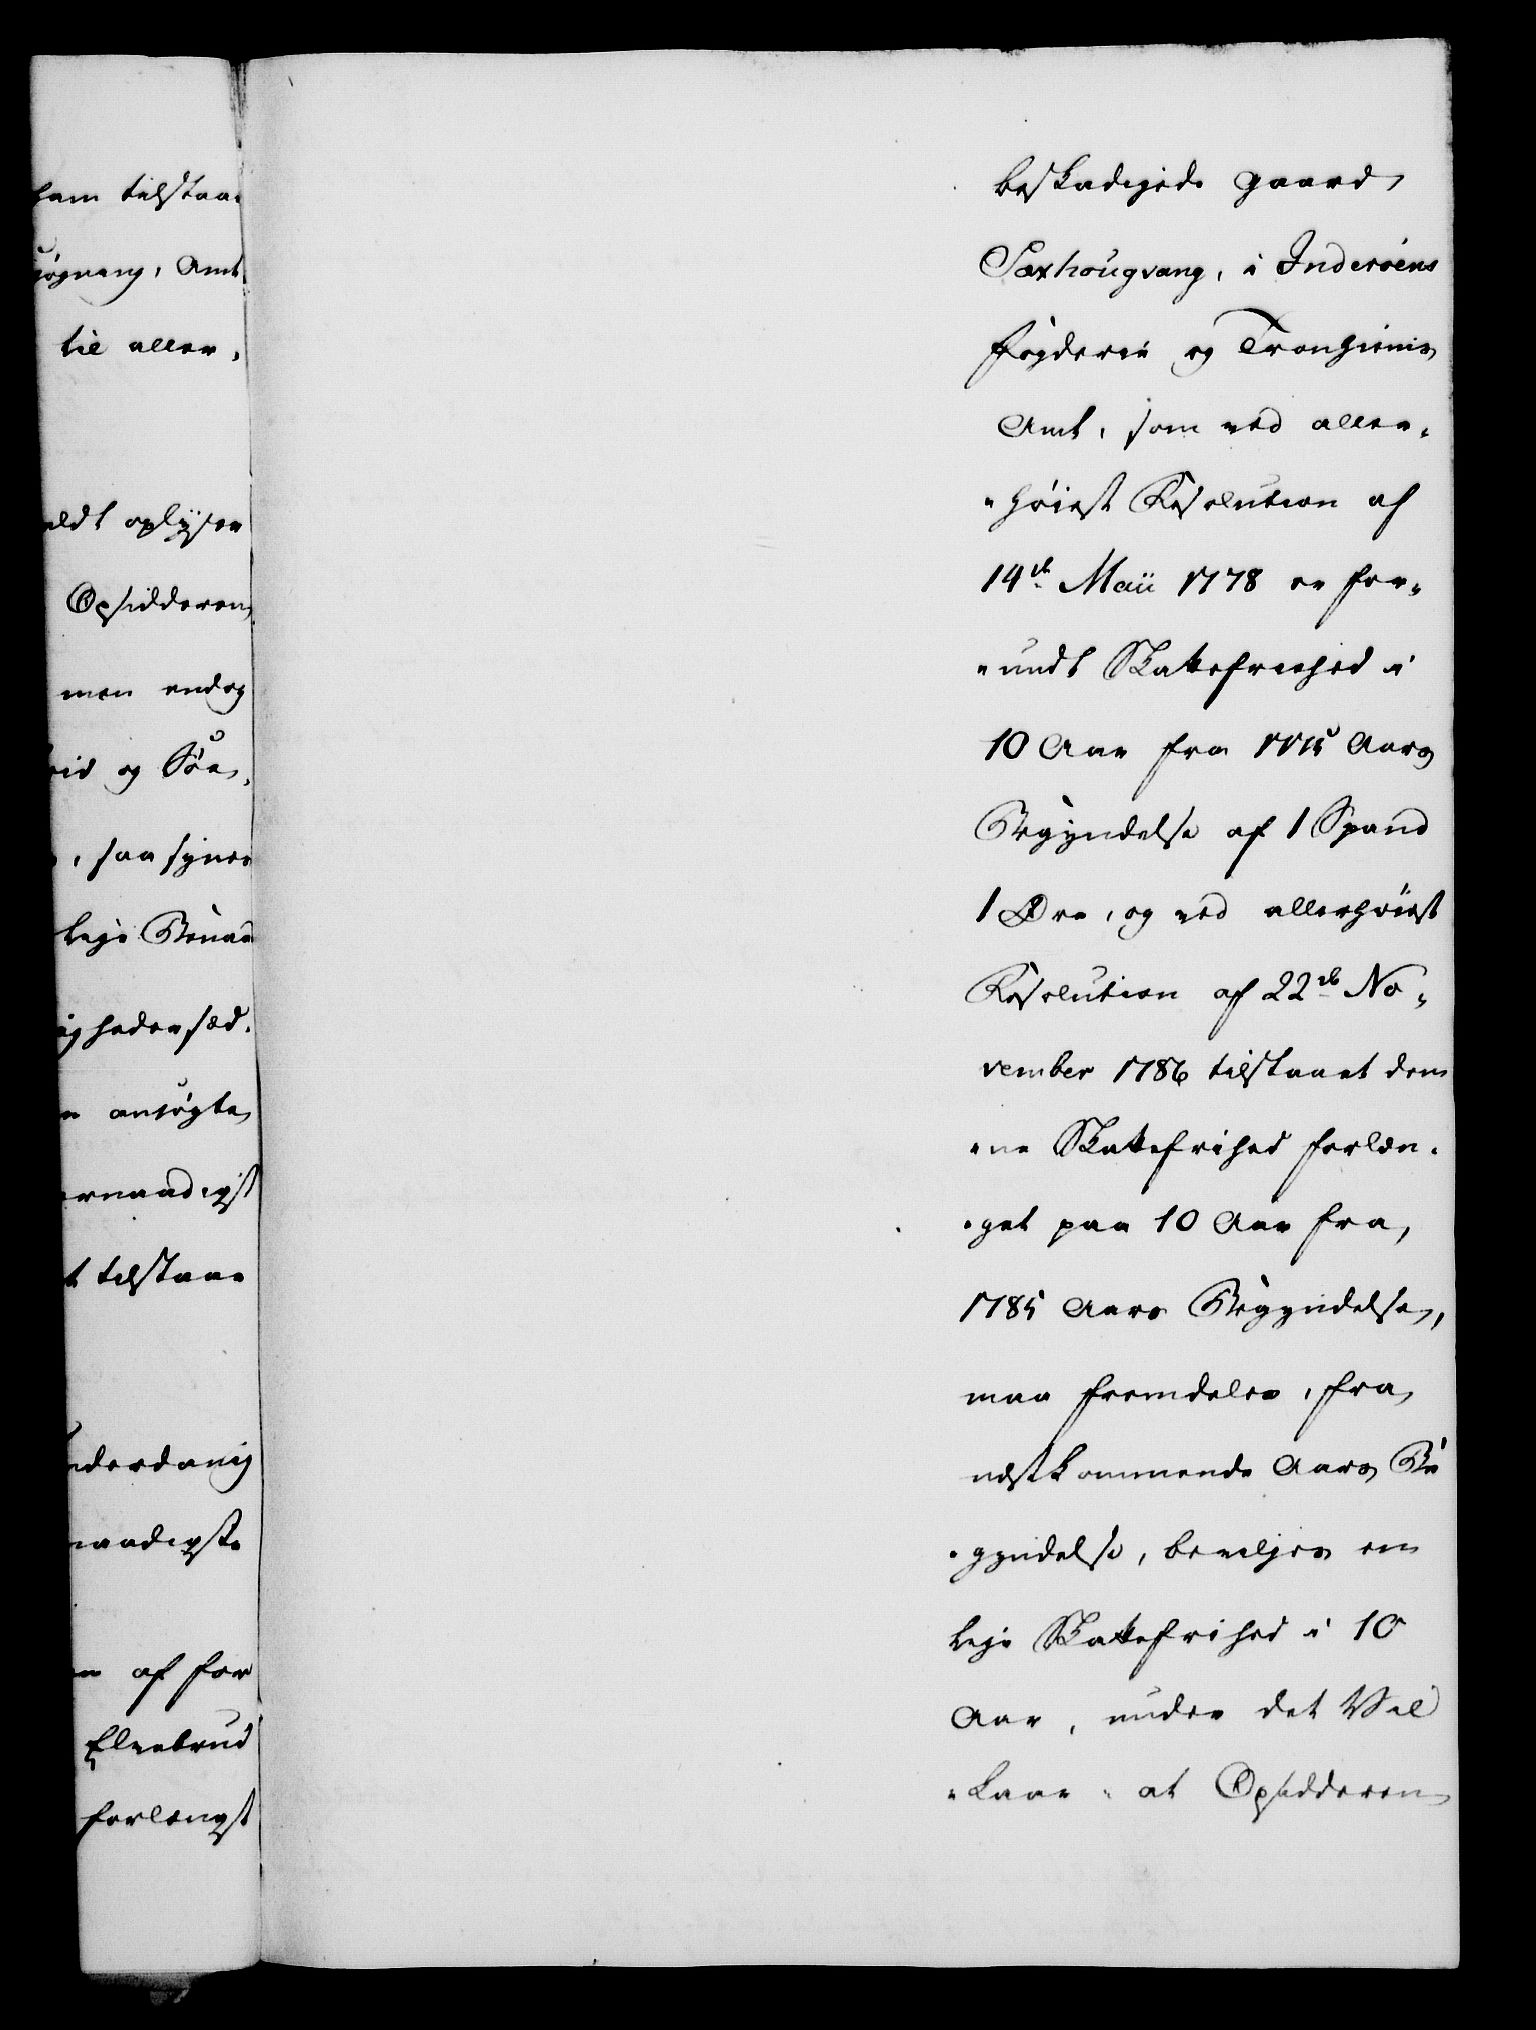 ham tilstaa-
søgning, Amt
til aller-
eldt oplyser
Opsidderen
men endog
og Søe,
, saa synes
lige
ighedersæd.
ansøgte
ernaadigst
t tilstaae
nderdanig
naadigste
af for
Elvebrud
forlengst
beskadigede Gaard
Saxhougvang, i Inderöens
Fogderie og Tronhiems
Amt, som ved aller-
-høiest Resolution af
14de Maii 1778 er for-
-undt Skattefriehed i
10 Aar fra 1775 Aars
Begyndelse af 1 Spand
1 Øre, og ved allerhøiest
Resolution af 22de No-
vember 1786 tilstaaet den-
-ne Skattefrihed forlæn-
-get paa 10 Aar fra
1785 Aars Begyndelse,
maa fremdeles, fra
næstkommende Aars Be
-gyndelse, beviljes en
lige Skattefrihed i 10
Aar, under det Vil
-kaar - at Opsidderen